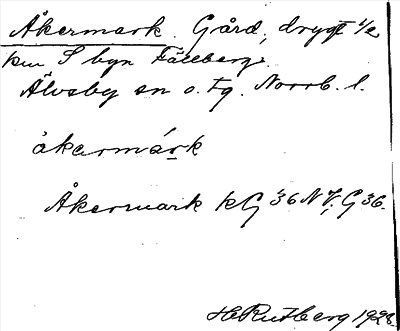 Åkermark. Gård, drygt ½
km S byn Fällberg.
Älvsby sn o. tg. Norrb. l.
åkermárk
Åkermark kG 36 NV; G 36.
H Rutberg 1928.